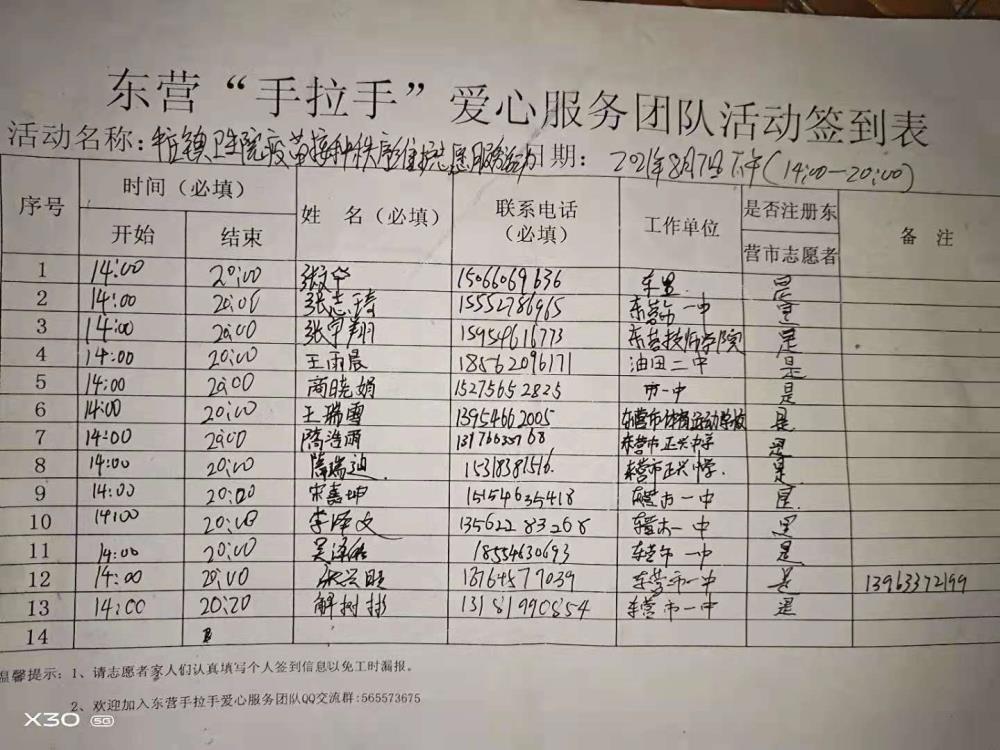 东营“手拉手”爱心服务团队活动签到表
活动名称：镇卫生院疫苗接种秩序维护志愿服务活动 日期： 2021年8月7日下午(14:00—20:00)
序号 时间（必填） 姓 名（必填） 联系电话（必填） 工作单位 是否注册东营市志愿者 备 注
开始 结束
1 14:00 20:00 张文 15066069636 是
2 14:00 20:00 张志琦 15552786965 东营市一中 是
3 14:00 20:00 张宇翔 15954616773 东营技师学院 是
4 14:00 20:00 王雨晨 18562096171 油田二中 是
5 14:00 20:00 商晓娟 15275652825 市一中 是
6 14:00 20:00 王瑞雪 13954662005 东营市体育运动学校 是
7 14:00 20:00 隋浩雨 东营市正兴中学 是
8 14:00 20:00 隋瑞迪 15318381516 东营市正兴中学. 是
9 14:00 20:00 宋嘉坤 15154635418 东营市一中 是
10 14:00 20:00 李泽文 13562283268 东营市一中 是
11 14:00 20:00 吴泽 18554630693 东营市一中 是
12 14:00 20:00 18764577039 东营市一中 是 13963372199
13 14:00 20:20 解树彬 13181990854 东营市一中 是
14
温馨提示：1、请志愿者家人们认真填写个人签到信息以免工时漏报。
2、欢迎加入东营手拉手爱心服务团队QQ交流群:565573675
X30 5G